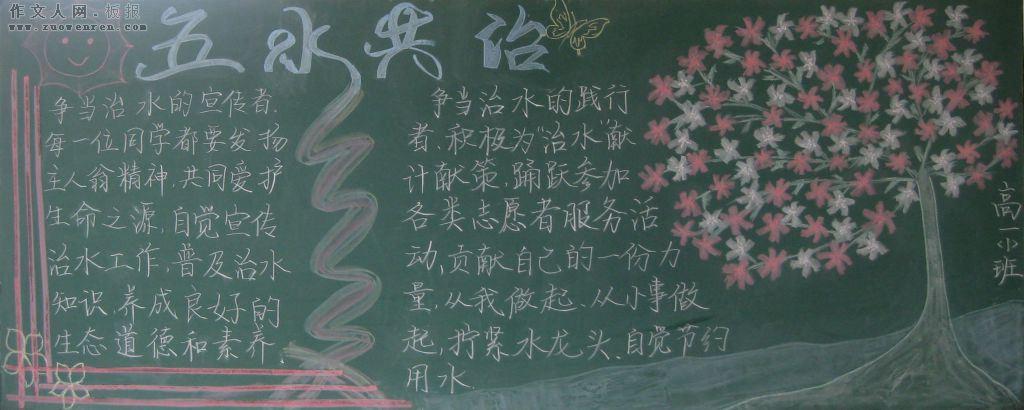 作文人网·板报
www.zuowenren.com
五水共治
争当治水的宣传者.
每一位同学都要发扬
主人翁精神,共同爱护
生命之源,自觉宣传
治水工作,普及治水
知识,养成良好的
生态道德和素养.
争当治水的践行
者.积极为“治水”献
计献策,踊跃参加
各类志愿者服务活
动,贡献自己的一份力
量,从我做起.从小事做
起,拧紧水龙头.自觉节约
用水.